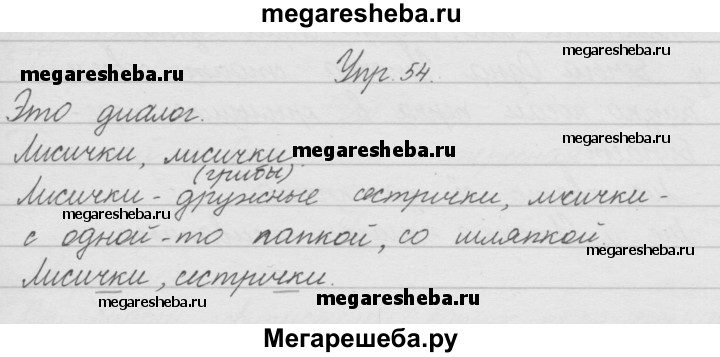 megaresheba.ru
Упр. 54.
megaresheba.ru
megaresheba.ru
Это диалог.
Лисички, лисички.
megaresheba.ru
(грибы)
Лисички - дружные сестрички, лисички -
megaresheba.ru
с одной-то лапкой, со шляпкой.
megaresheba.ru
Лисички, сестрички.
megaresheba.ru
megaresheba.ru
Мегарешеба.ру